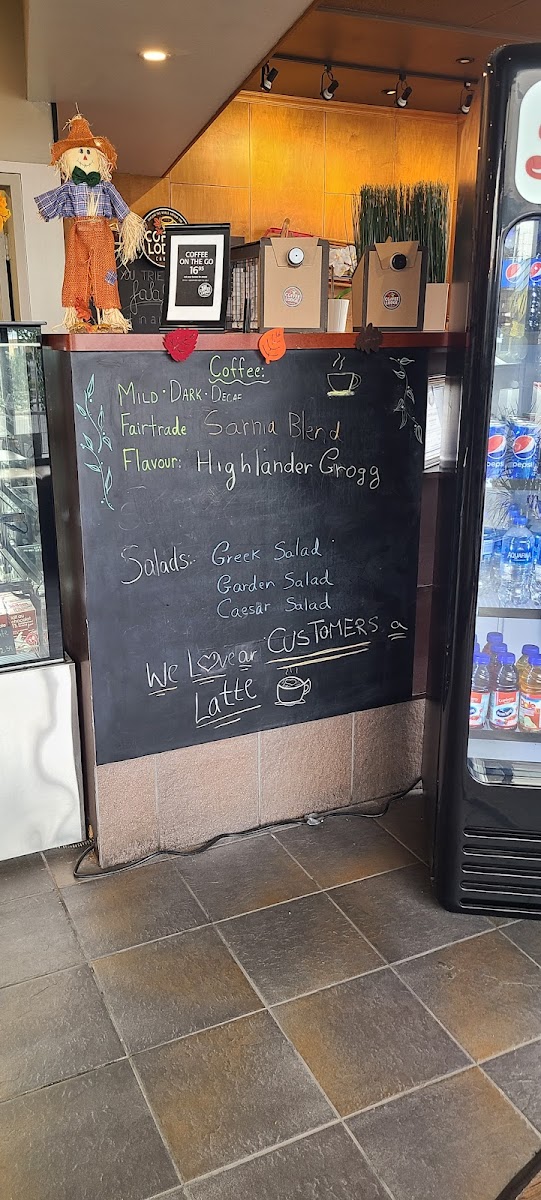 COFFEE
ON THE GO
16⁹⁵
YOU TRIE
Coffee:
MILD · DARK · DECAF
Fairtrade Sarnia Blend
Flavour: Highlander Grogg
Salads: Greek Salad
Garden Salad
Caesar Salad
We Love ar CUSTOMERS a
Latte
pepsi
pepsi
AQUAFINA